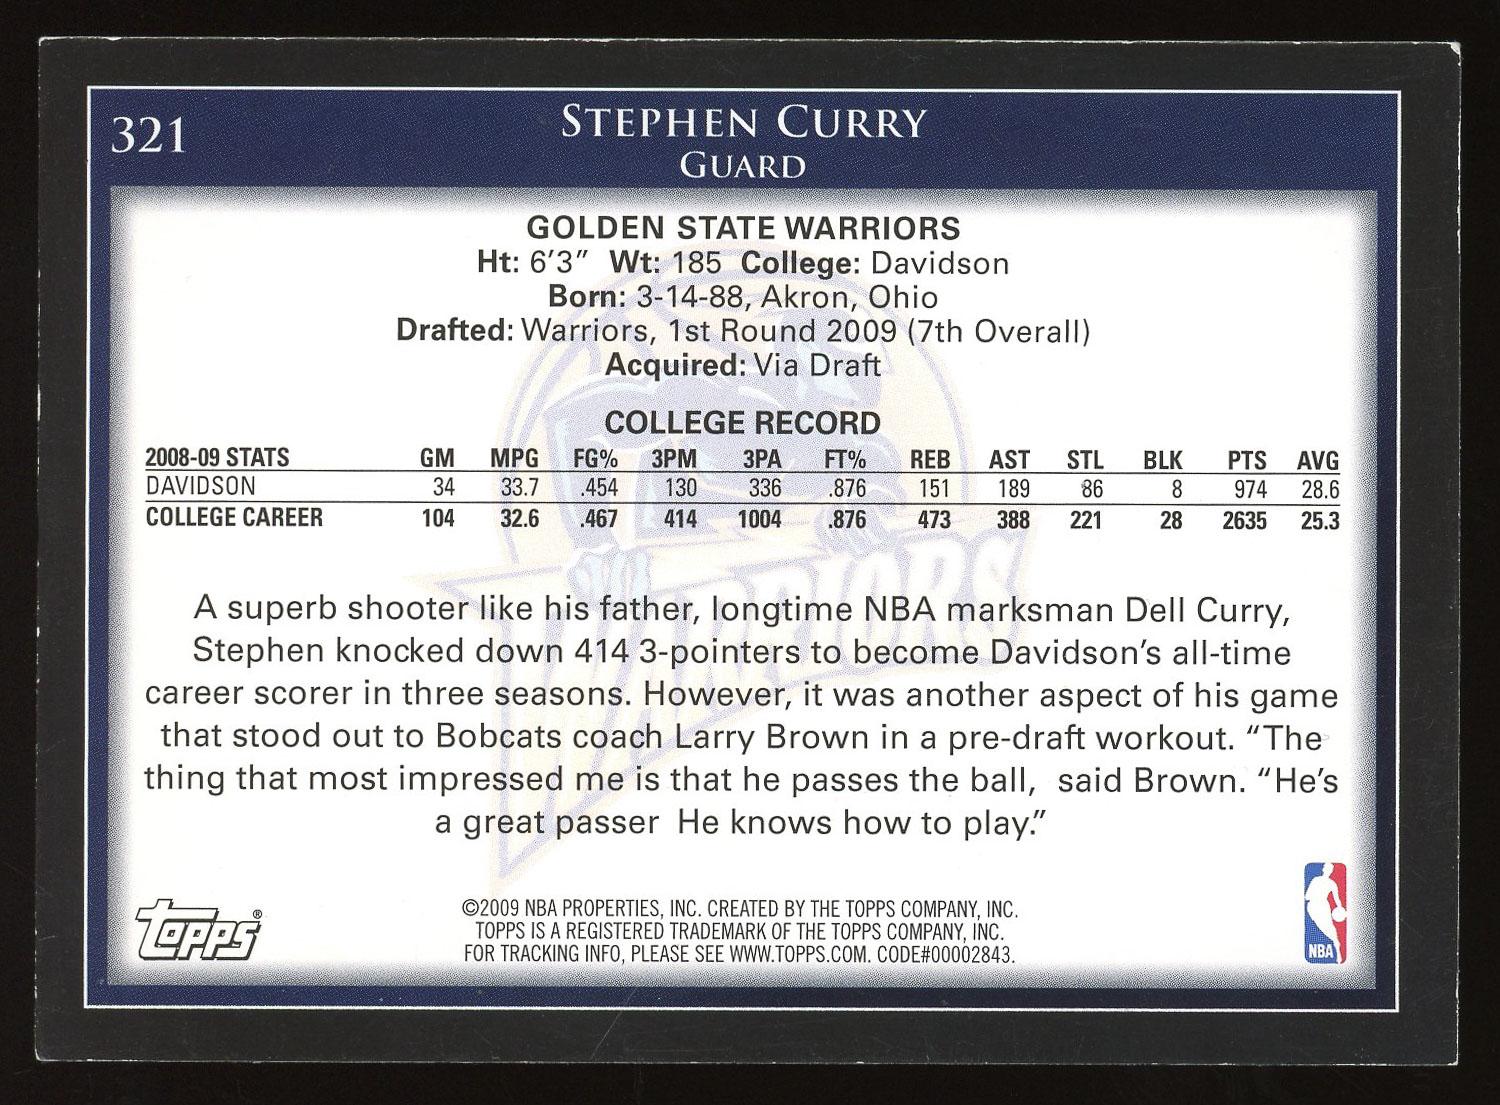 321
STEPHEN CURRY
GUARD
GOLDEN STATE WARRIORS
Ht: 6'3" Wt: 185 College: Davidson
Born: 3-14-88, Akron, Ohio
Drafted: Warriors, 1st Round 2009 (7th Overall)
Acquired: Via Draft
COLLEGE RECORD
2008-09 STATS GM MPG FG% 3PM 3PA FT% REB AST STL BLK PTS AVG
DAVIDSON 34 33.7 .454 130 336 .876 151 189 86 8 974 28.6
COLLEGE CAREER 104 32.6 .467 414 1004 .876 473 388 221 28 2635 25.3
WARRIORS
A superb shooter like his father, longtime NBA marksman Dell Curry,
Stephen knocked down 414 3-pointers to become Davidson's all-time
career scorer in three seasons. However, it was another aspect of his game
that stood out to Bobcats coach Larry Brown in a pre-draft workout. “The
thing that most impressed me is that he passes the ball, said Brown. “He's
a great passer He knows how to play.”
Topps®
©2009 NBA PROPERTIES, INC. CREATED BY THE TOPPS COMPANY, INC.
TOPPS IS A REGISTERED TRADEMARK OF THE TOPPS COMPANY, INC.
FOR TRACKING INFO, PLEASE SEE WWW.TOPPS.COM. CODE#00002843.
NBA